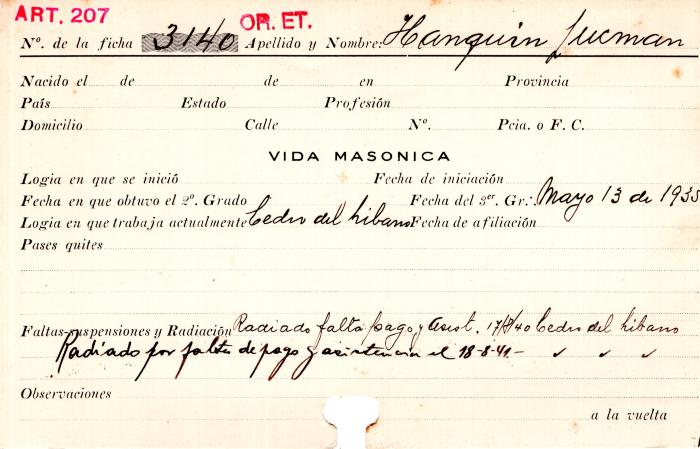 ART. 207
OR. ET.
Nº. de la ficha 3140 Apellido y Nombre: Hanquin Jucman
Nacido el de de en Provincia
País Estado Profesión
Domicilio Calle Nº. Pcia. o F. C.
VIDA MASONICA
Logia en que se inició Fecha de iniciación
Fecha en que obtuvo el 2º. Grado Fecha del 3er. Gr.·. Mayo 13 de 1935
Logia en que trabaja actualmente Cedro del Libano Fecha de afiliación
Pases quites
Faltas-suspensiones y Radiación Radiado falta pago y asist. 17/8/40 Cedro del Libano
Radiado por falta de pago y asistencia el 18-8-41.- ✓ ✓ ✓
Observaciones
a la vuelta